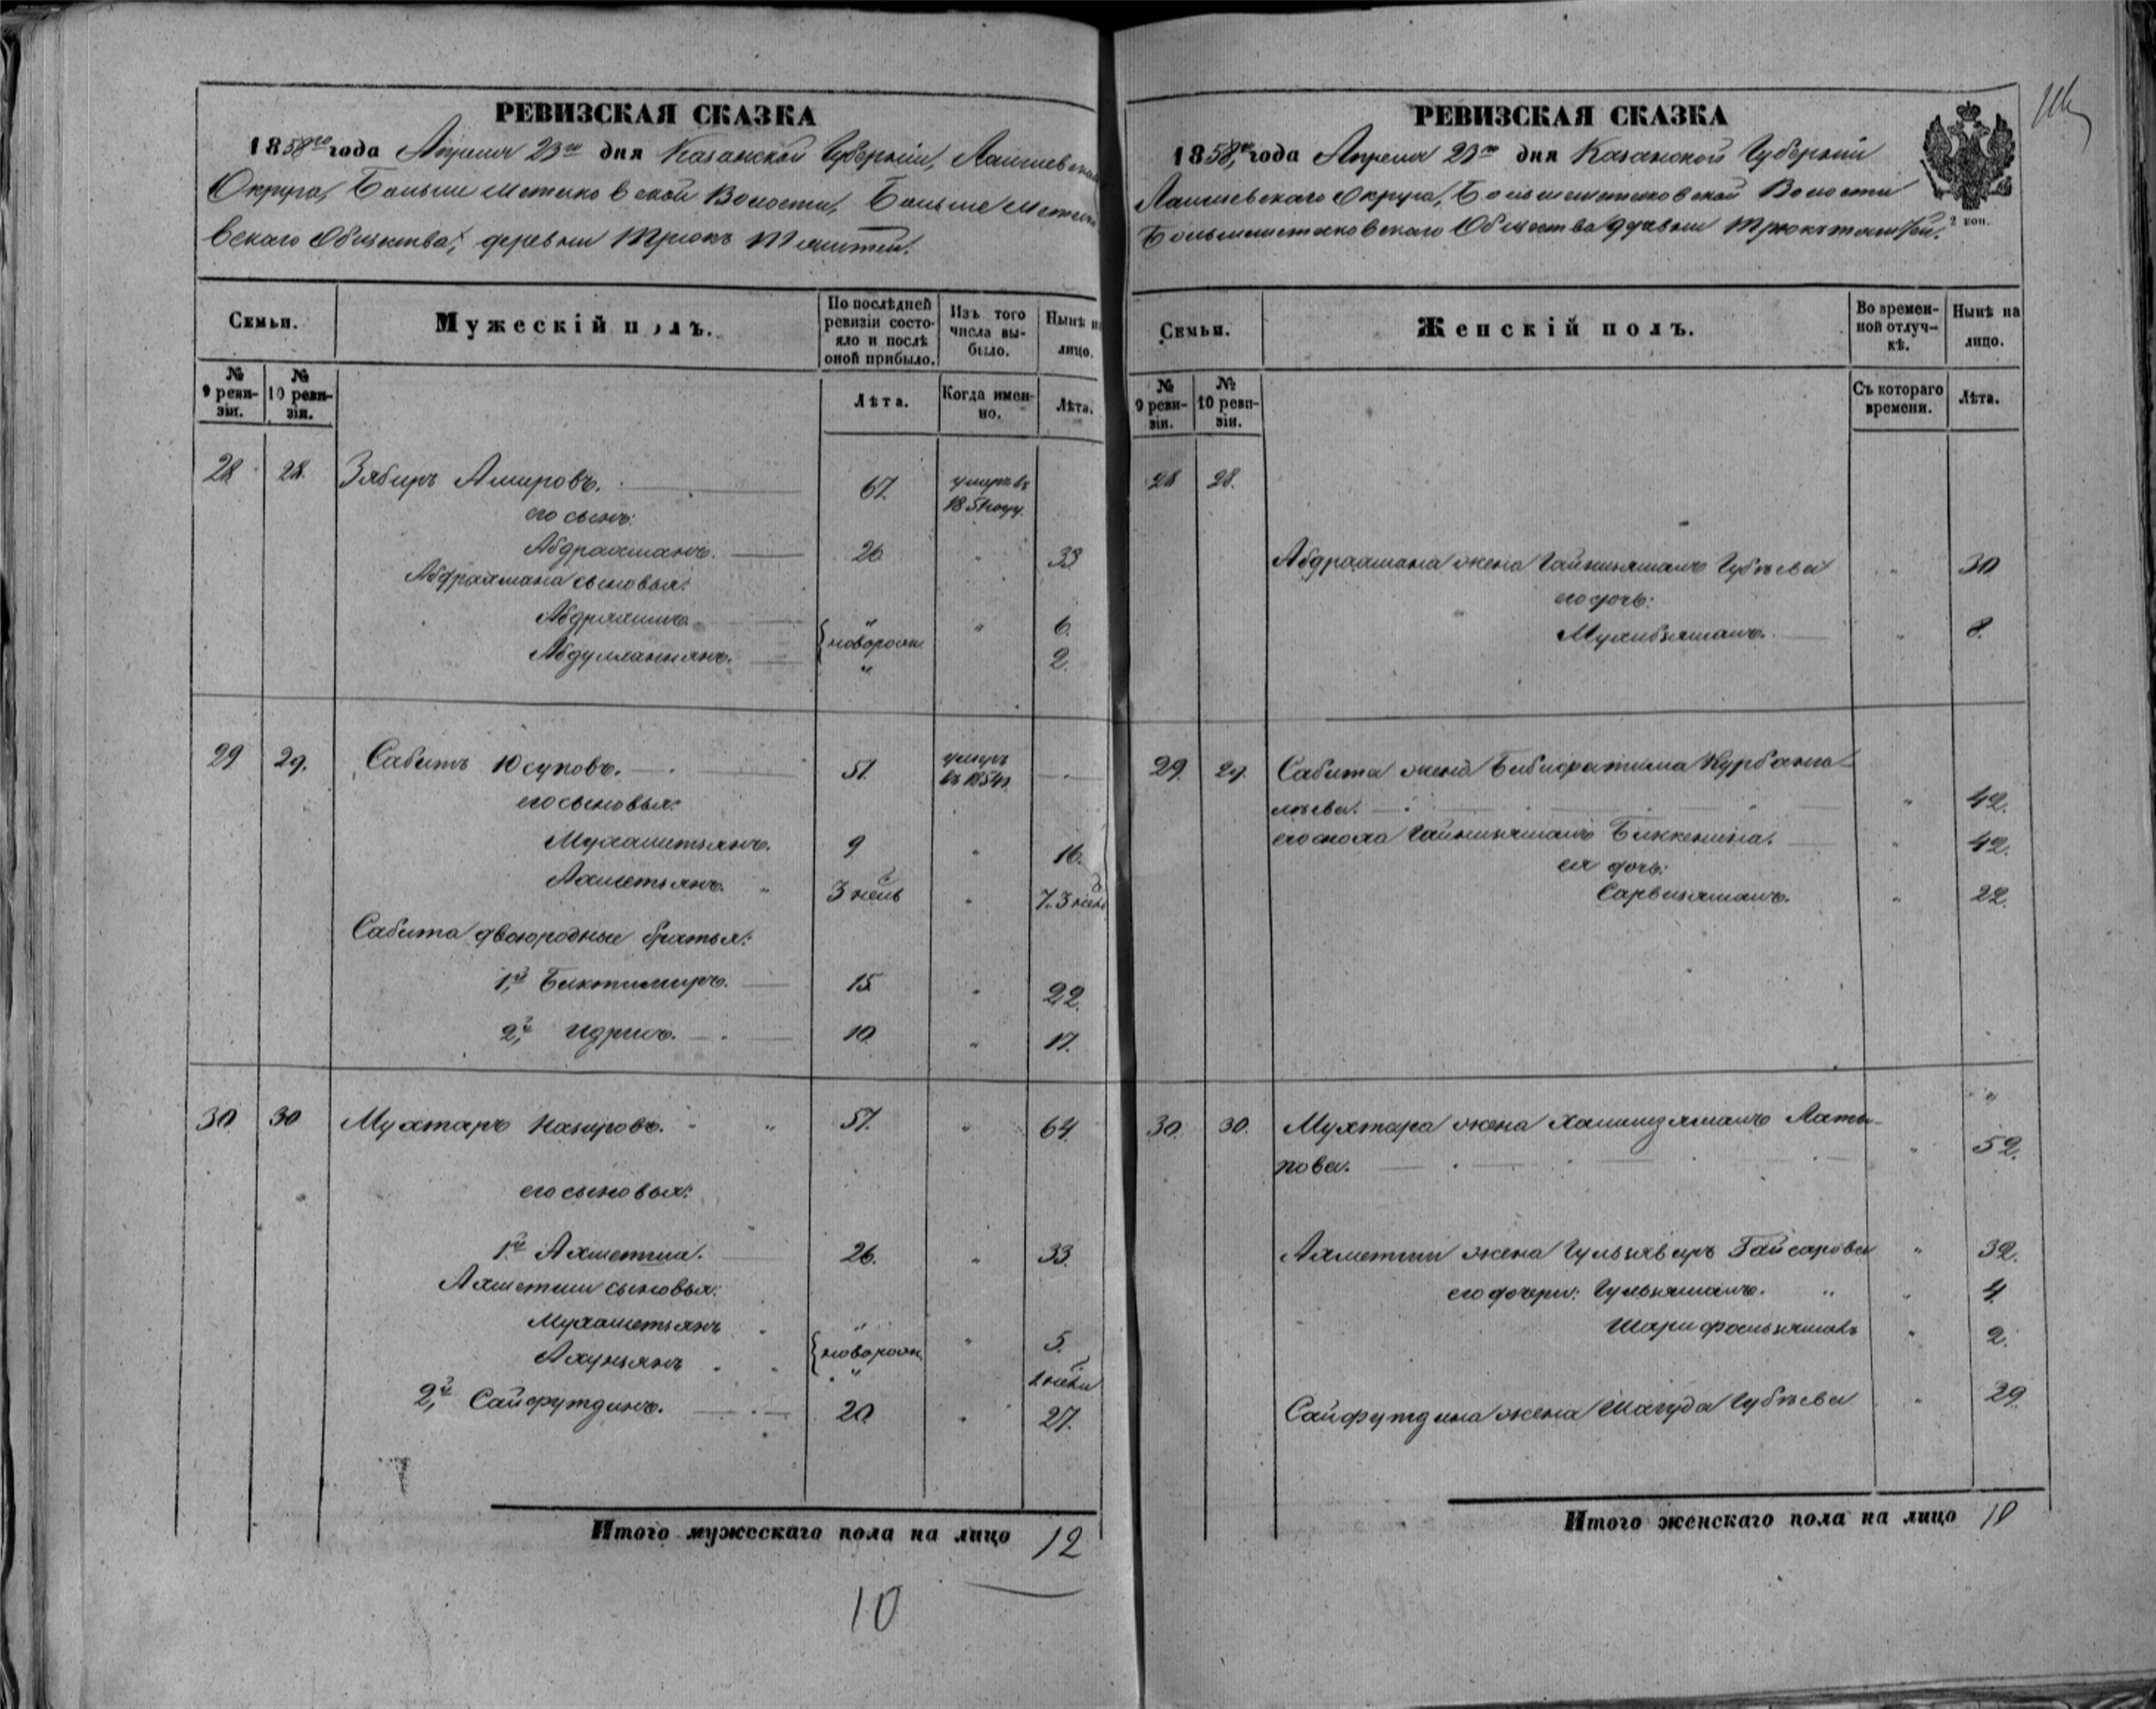 РЕВИЗСКАЯ СКАЗКА
1858го года Апреля 23го дня Казанской Губерніи, Лаишевскаго
Округа, Больше Метеско вской Волости, Больше Метеско
вскаго Общества, деревни Трюкъ Тямтей.
Семьи.
Мужескій полъ.
По послѣдней ревизіи состояло и послѣ оной прибыло.
Изъ того числа выбыло.
Нынѣ на лицо.
№ 9 ревизіи.
№ 10 ревизіи.
Лѣта.
Когда именно.
Лѣта.
28 28. Зябиръ Амировъ. 67. умеръ въ 1851 году.
его сынъ:
Абдраманъ. 26 " 33
Абдрамана сыновья:
Абдрахимъ " " 6.
новорож.
" 2.
29 29. Сабитъ Юсуповъ. 51. умеръ въ 1854 г.
его сыновья:
Мухаметзянъ. 9 " 16.
Ахметзянъ. " 3 нед " 7. 3 нед
Сабита двоюродные братья:
1й Биктимиръ. 15. " 22.
2й Идрисъ. 10 " 17.
30 30 Мухтаръ Назировъ. " " 57. " 64.
его сыновья:
1й Ахметша. 26. " 33.
Ахметши сыновья:
Мухаметзянъ " " 5.
Ахунзянъ новорож. "
2й Сайфутдинъ. 20 " 27.
Итого мужескаго пола на лицо 12
10
РЕВИЗСКАЯ СКАЗКА
1858го года Апреля 23го дня Казанской Губерніи
Лаишевскаго Округа, Большеметесковской Волости
Большеметесковскаго Общества деревни Трюкътямтей.
2 коп.
Семьи.
Женскій полъ.
Во временной отлучкѣ.
Нынѣ на лицо.
№ 9 ревизіи.
№ 10 ревизіи.
Съ котораго времени.
Лѣта.
28 28.
Абдрамана жена Гайнизямалъ Губѣева " 30
его дочь:
Мухибзямалъ. " 8.
29. 29. Сабита жена Бибифатима Курбанга-
лѣева. " 42.
его сноха Гайнизямалъ Биккенина. " 42.
ея дочь:
Сарвизямалъ. " 22.
30. 30. Мухтара жена Хамизямалъ Латы-
пова. " 52.
Ахметши жена Гульзявиръ Гайсарова " 32.
его дочери: Гульзямалъ. " " 4.
Шарифользямалъ " 2.
Сайфутдина жена Магуда Губѣева " 29.
Итого женскаго пола на лицо 10